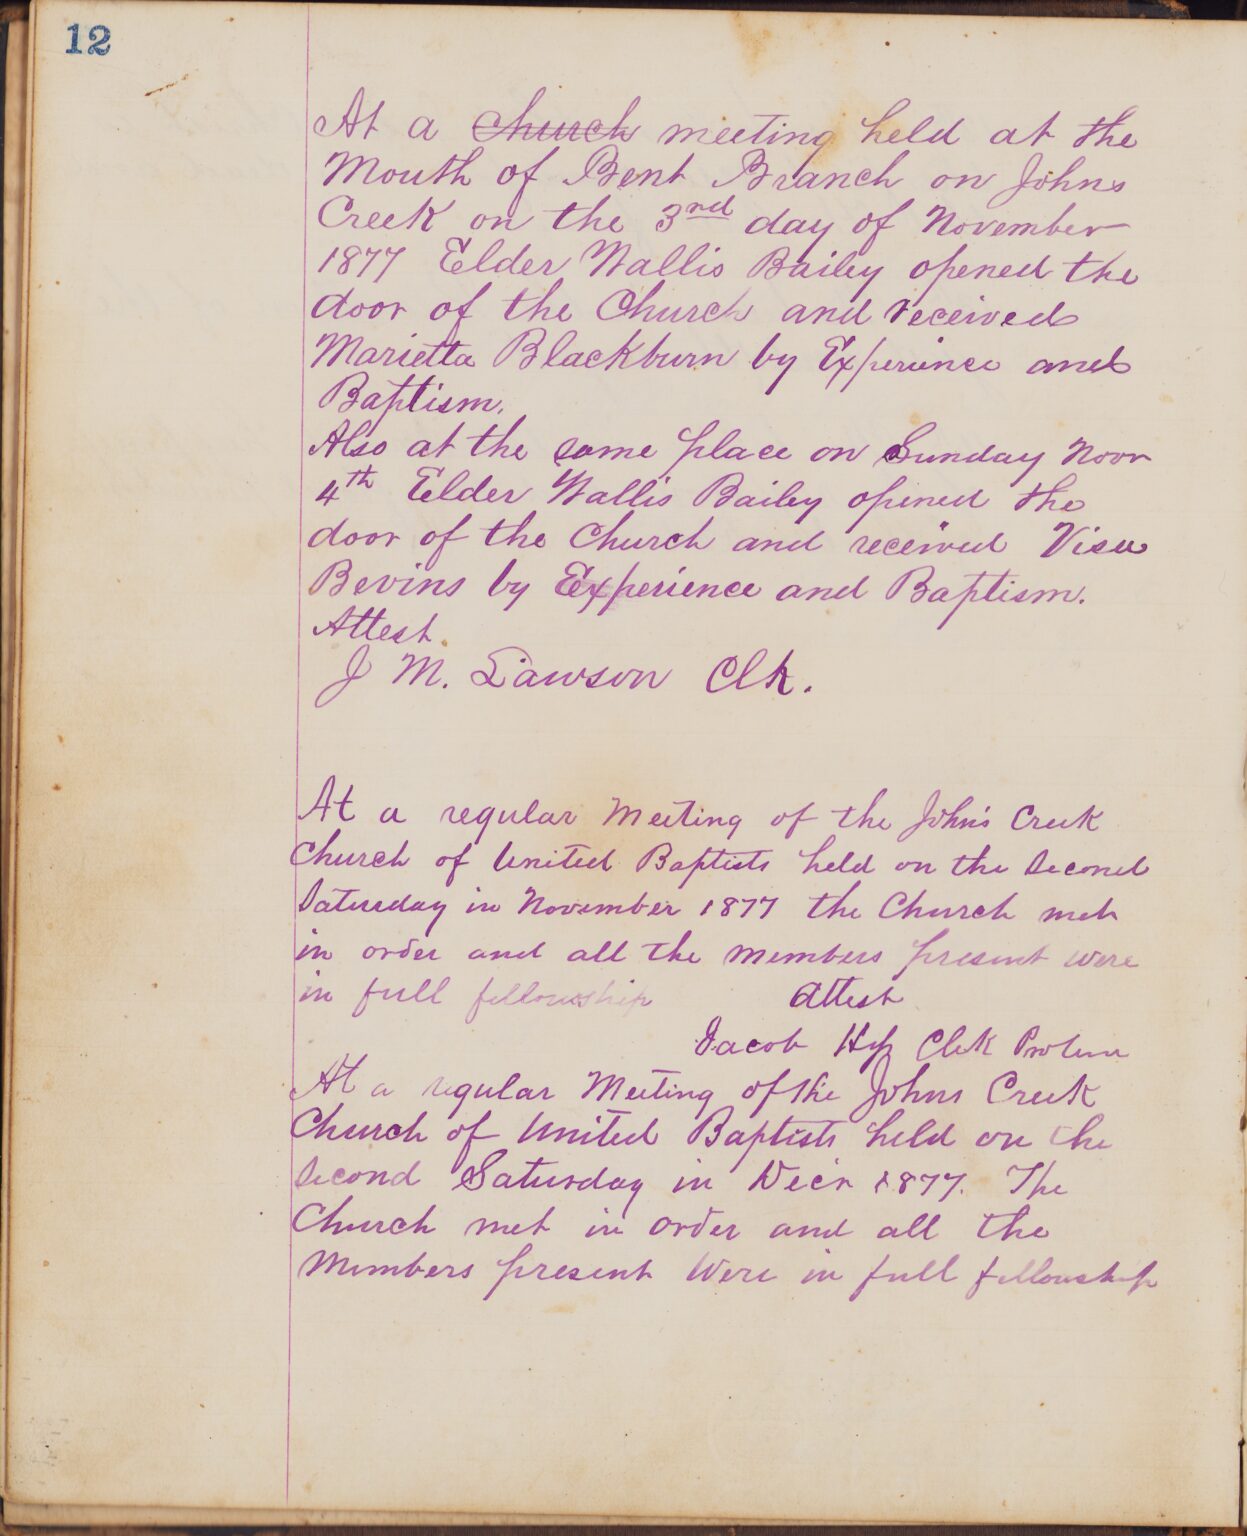 12
At a church meeting held at the
Mouth of Bent Branch on Johns
Creek on the 3rd day of November
1877 Elder Wallis Bailey opened the
door of the Church and received
Marietta Blackburn by Experience and
Baptism.
Also at the same place on Sunday Novr
4th Elder Wallis Bailey opened the
door of the Church and received Visa
Bevins by Experience and Baptism.
Attest
J M. Lawson Clk.
At a regular Meeting of the John's Creek
Church of United Baptists held on the Second
Saturday in November 1877 the Church met
in order and all the members present were
in full fellowship Attest
Jacob Clek Protem
At a regular Meeting of the Johns Creek
Church of United Baptists held on the
Second Saturday in Dec'r 1877. The
Church met in order and all the
Members present Were in full fellowship